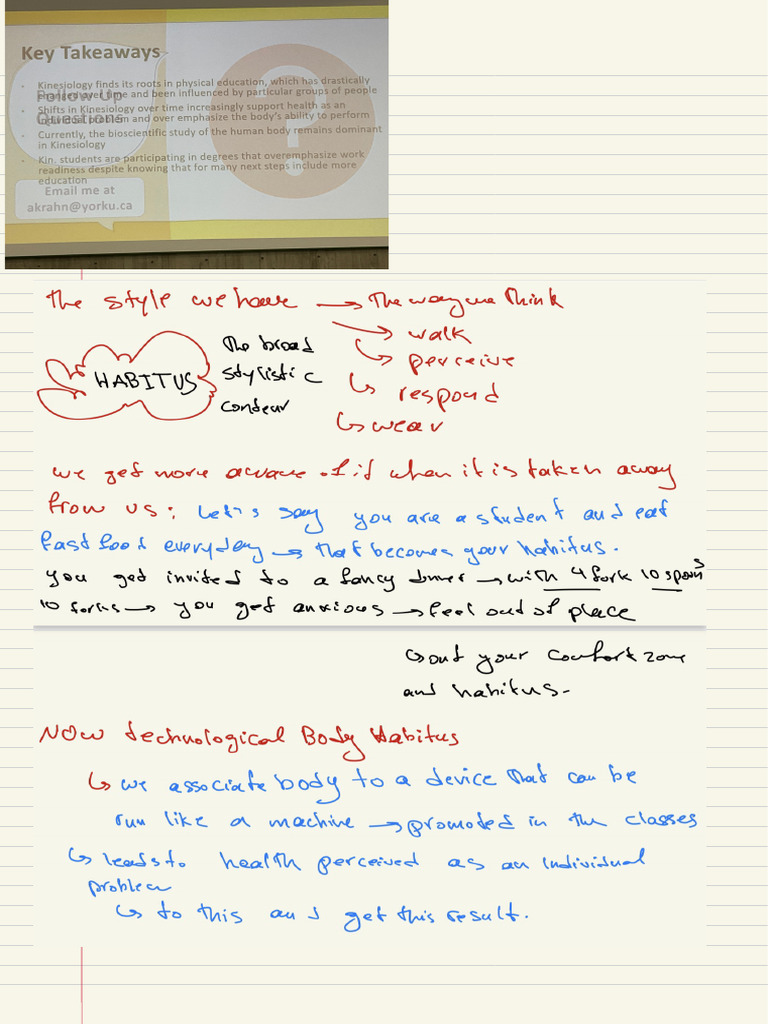 Key Takeaways
Kinesiology finds its roots in physical education, which has drastically
changed over time and been influenced by particular groups of people
Follow Up
Shifts in Kinesiology over time increasingly support health as an
individual problem and over emphasize the body's ability to perform
Questions
Currently, the bioscientific study of the human body remains dominant
in Kinesiology
Kin. students are participating in degrees that overemphasize work
readiness despite knowing that for many next steps include more
education
Email me at
akrahn@yorku.ca
?
The style we have → The way we think
→ walk
↳ perceive
↳ respond
↳ wear
HABITUS
The broad
stylistic
we get more aware of it when it is taken away
from us: Let's say you are a student and eat
fast food everyday → that becomes your habitus.
you get invited to a fancy dinner → with 4 fork 10 spoons
10 forks → you get anxious → feel out of place
↳ out your comfort zone
and habitus-
NOW technological Body Habitus
↳ we associate body to a device that can be
run like a machine → promoted in the classes
↳ leads to health perceived as an individual
problem
↳ to this and get this result.